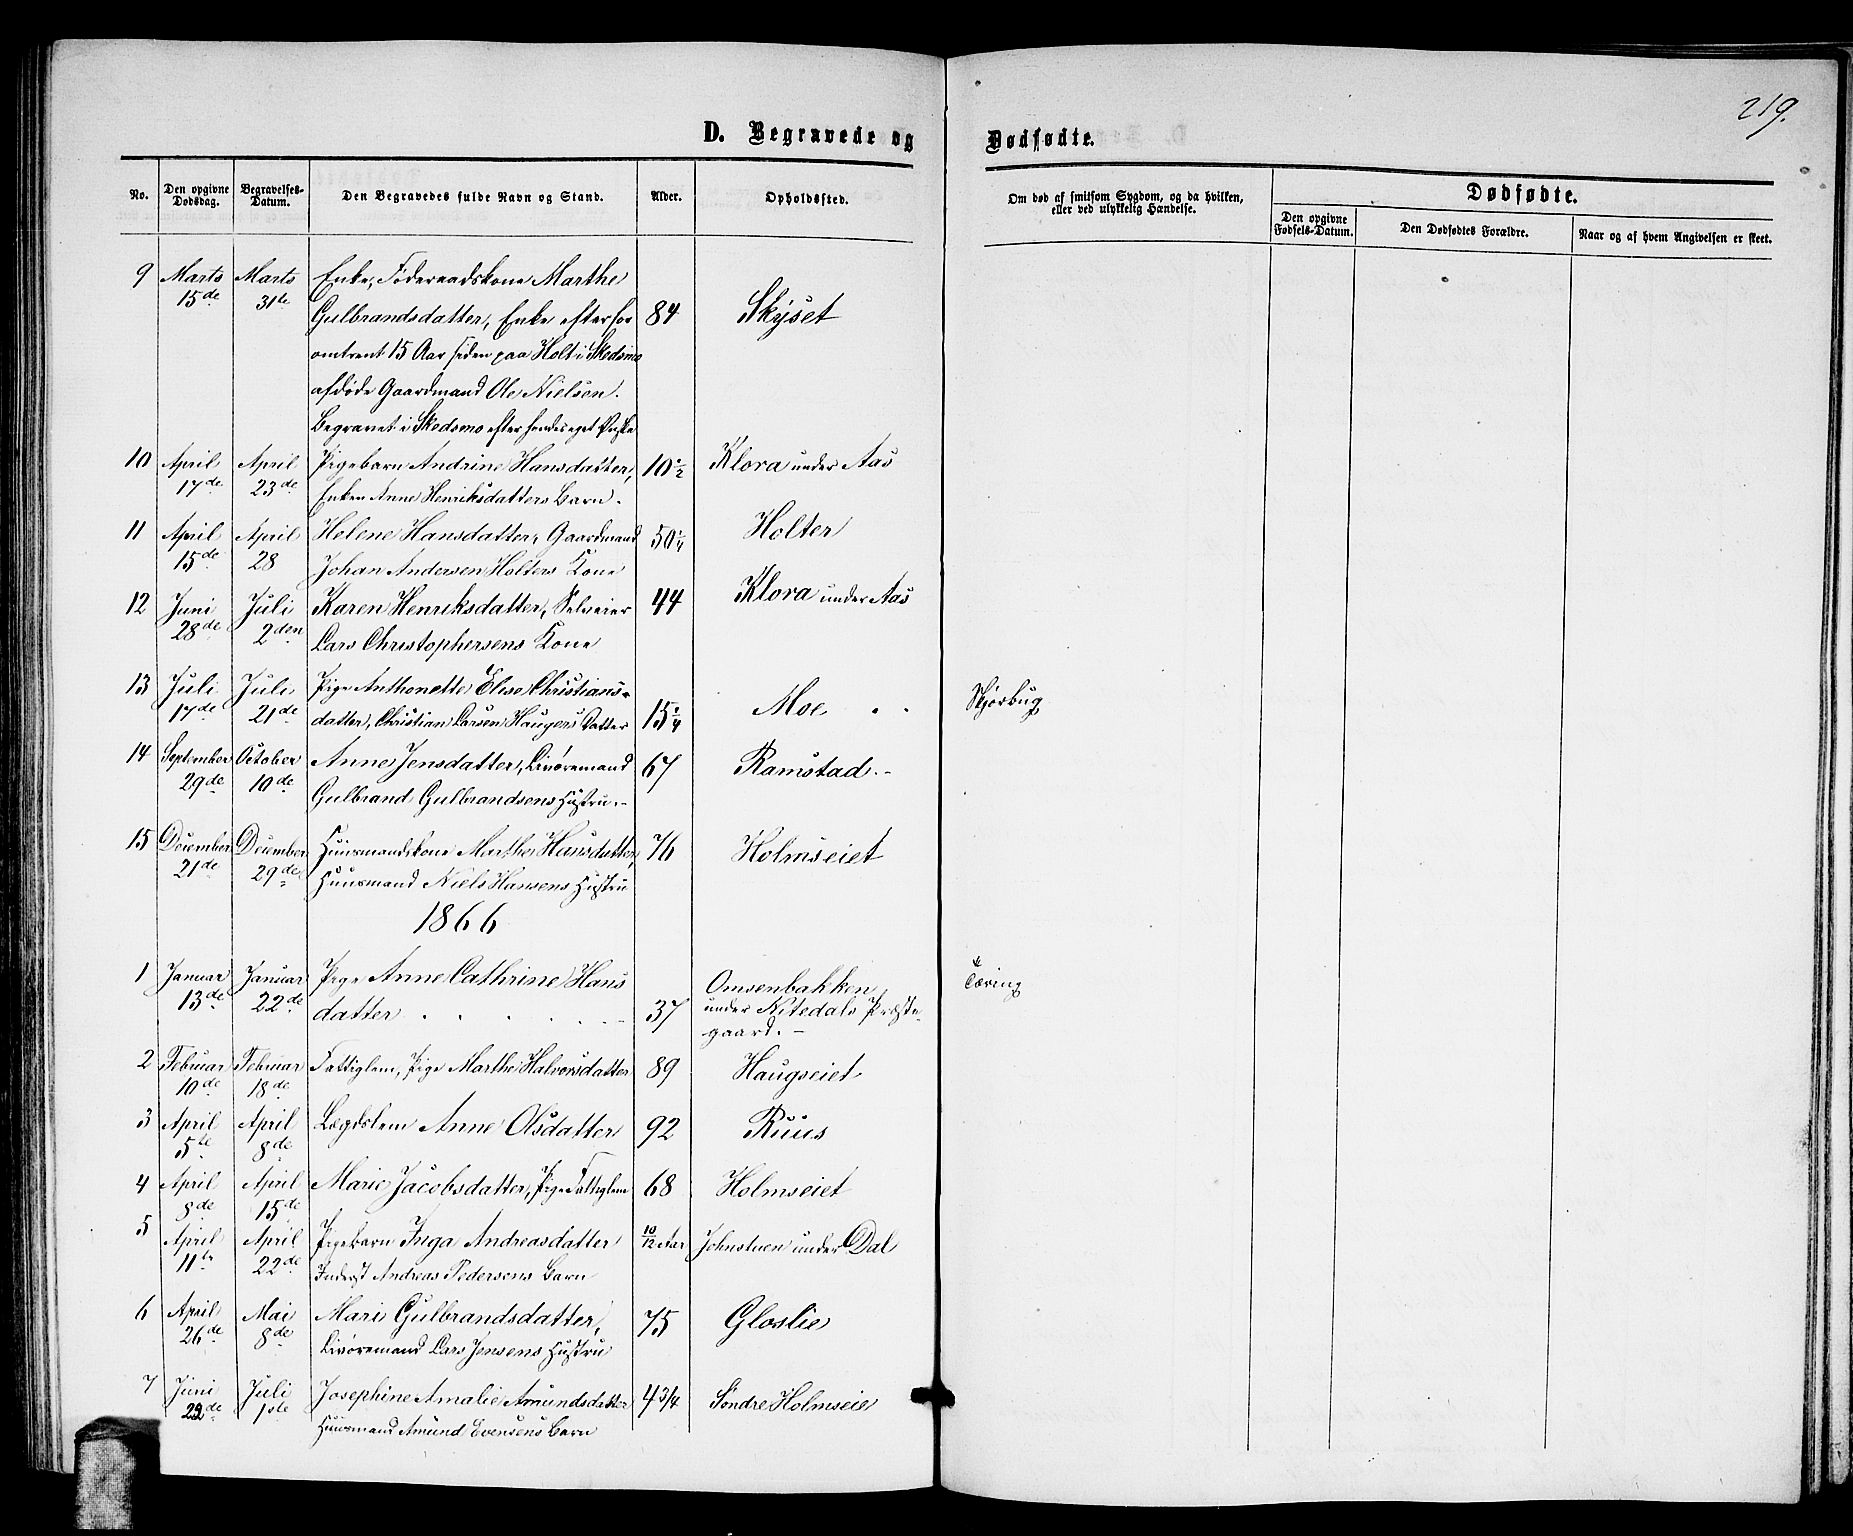 219.
D. Begravede og Dødfødte.
No. Den opgivne Dødsdag. Begravelses-Datum. Den Begravedes fulde Navn og Stand. Alder. Opholdssted. Om død af smitsom Sygdom, og da hvilken, eller ved ulykkelig Hændelse. Dødfødte.
Den opgivne Fødsels-Datum. Den Dødfødtes Forældre. Naar og af hvem Angivelsen er skeet.
9 Marts Marts Enke, Føderaadskone Marthe
15de 31te Gulbrandsdatter, Enke efter for 84 Skyset
omtrent 15 Aar siden paa Holt i Skedsmo
afdøde Gaardmand Ole Nielsen.
Begravet i Skedsmo efter hendes eget Ønske
10 April April Pigebarn Andrine Hansdatter, 10 1/2 Klora under Aas
17de 23de Enken Anne Henriksdatters Barn.
11 April April Helene Hansdatter, Gaardmand 50 1/4 Holter
15de 28 Johan Andersen Holters Kone
12 Juni Juli Karen Henriksdatter, Selveier 44 Klora under Aas
28de 2den Lars Christophersens Kone
13 Juli Juli Pige Anthonette Elise Christians- Moe Skjørbug
17de 21de datter, Christian Larsen Haugers Datter 15 1/4
14 September October Anne Jensdatter, Livøremand 67 Ramstad.-
29de 10de Gulbrand Gulbrandsens Hustru.-
15 December December Huusmandskone Marthe Hansdatter, 76 Holmseiet
21de 29de Huusmand Niels Hansens Hustru
1866
1 Januar Januar Pige Anne Cathrine Hans Omsenbakken Tæring
13de 22de datter 37 under Nitedals Præste-
gaard.-
2 Februar Februar Fattiglem, Pige Marthe Halvorsdatter 89 Haugseiet
10de 18de
3 April April Lægdslem Anne Olsdatter 92 Ruus
5te 8de
4 April April Marie Jacobsdatter, Pige Fattiglem 68 Holmseiet
8de 15de
5 April April Pigebarn Inga Andreasdatter 10/12 Aar Johnstuen under Dal
11te 22de Inderst Andreas Pedersens Barn
6 April Mai Mari Gulbrandsdatter, 75 Gloslie
26de 8de Livøremand Lars Jensens Hustru
7 Juni Juli Josephine Amalie Amundsdatter 4 3/4 Søndre Holmseie
22de 1ste Huusmand Amund Evensens Barn